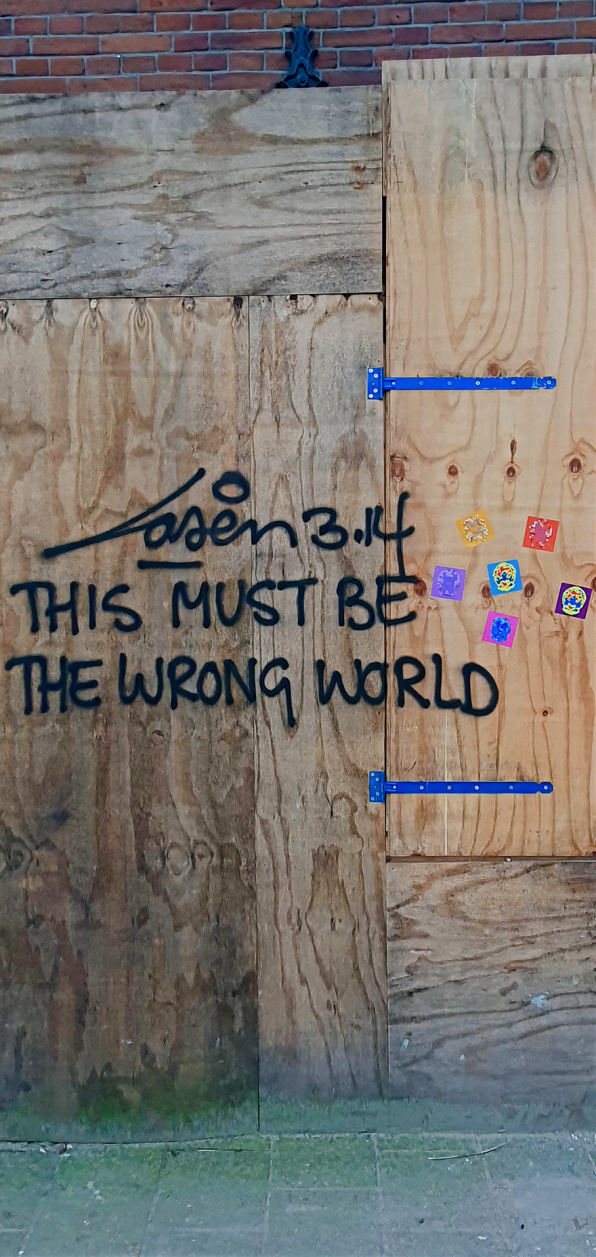 Laser 3.14
THIS MUST BE
THE WRONG WORLD